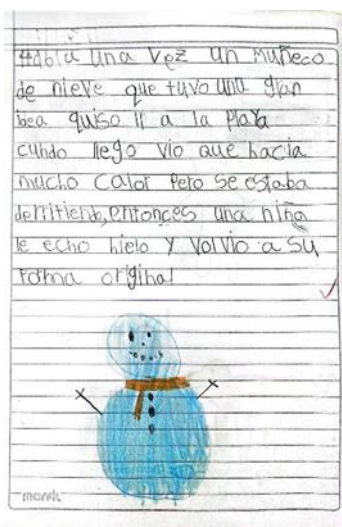 Había una vez un muñeco
de nieve que tuvo una gran
bea quiso ir a la playa
cundo llego vio que hacia
mucho calor pero se estaba
derritiendo, entonces una niña
le echo hielo y volvio a su
forma original